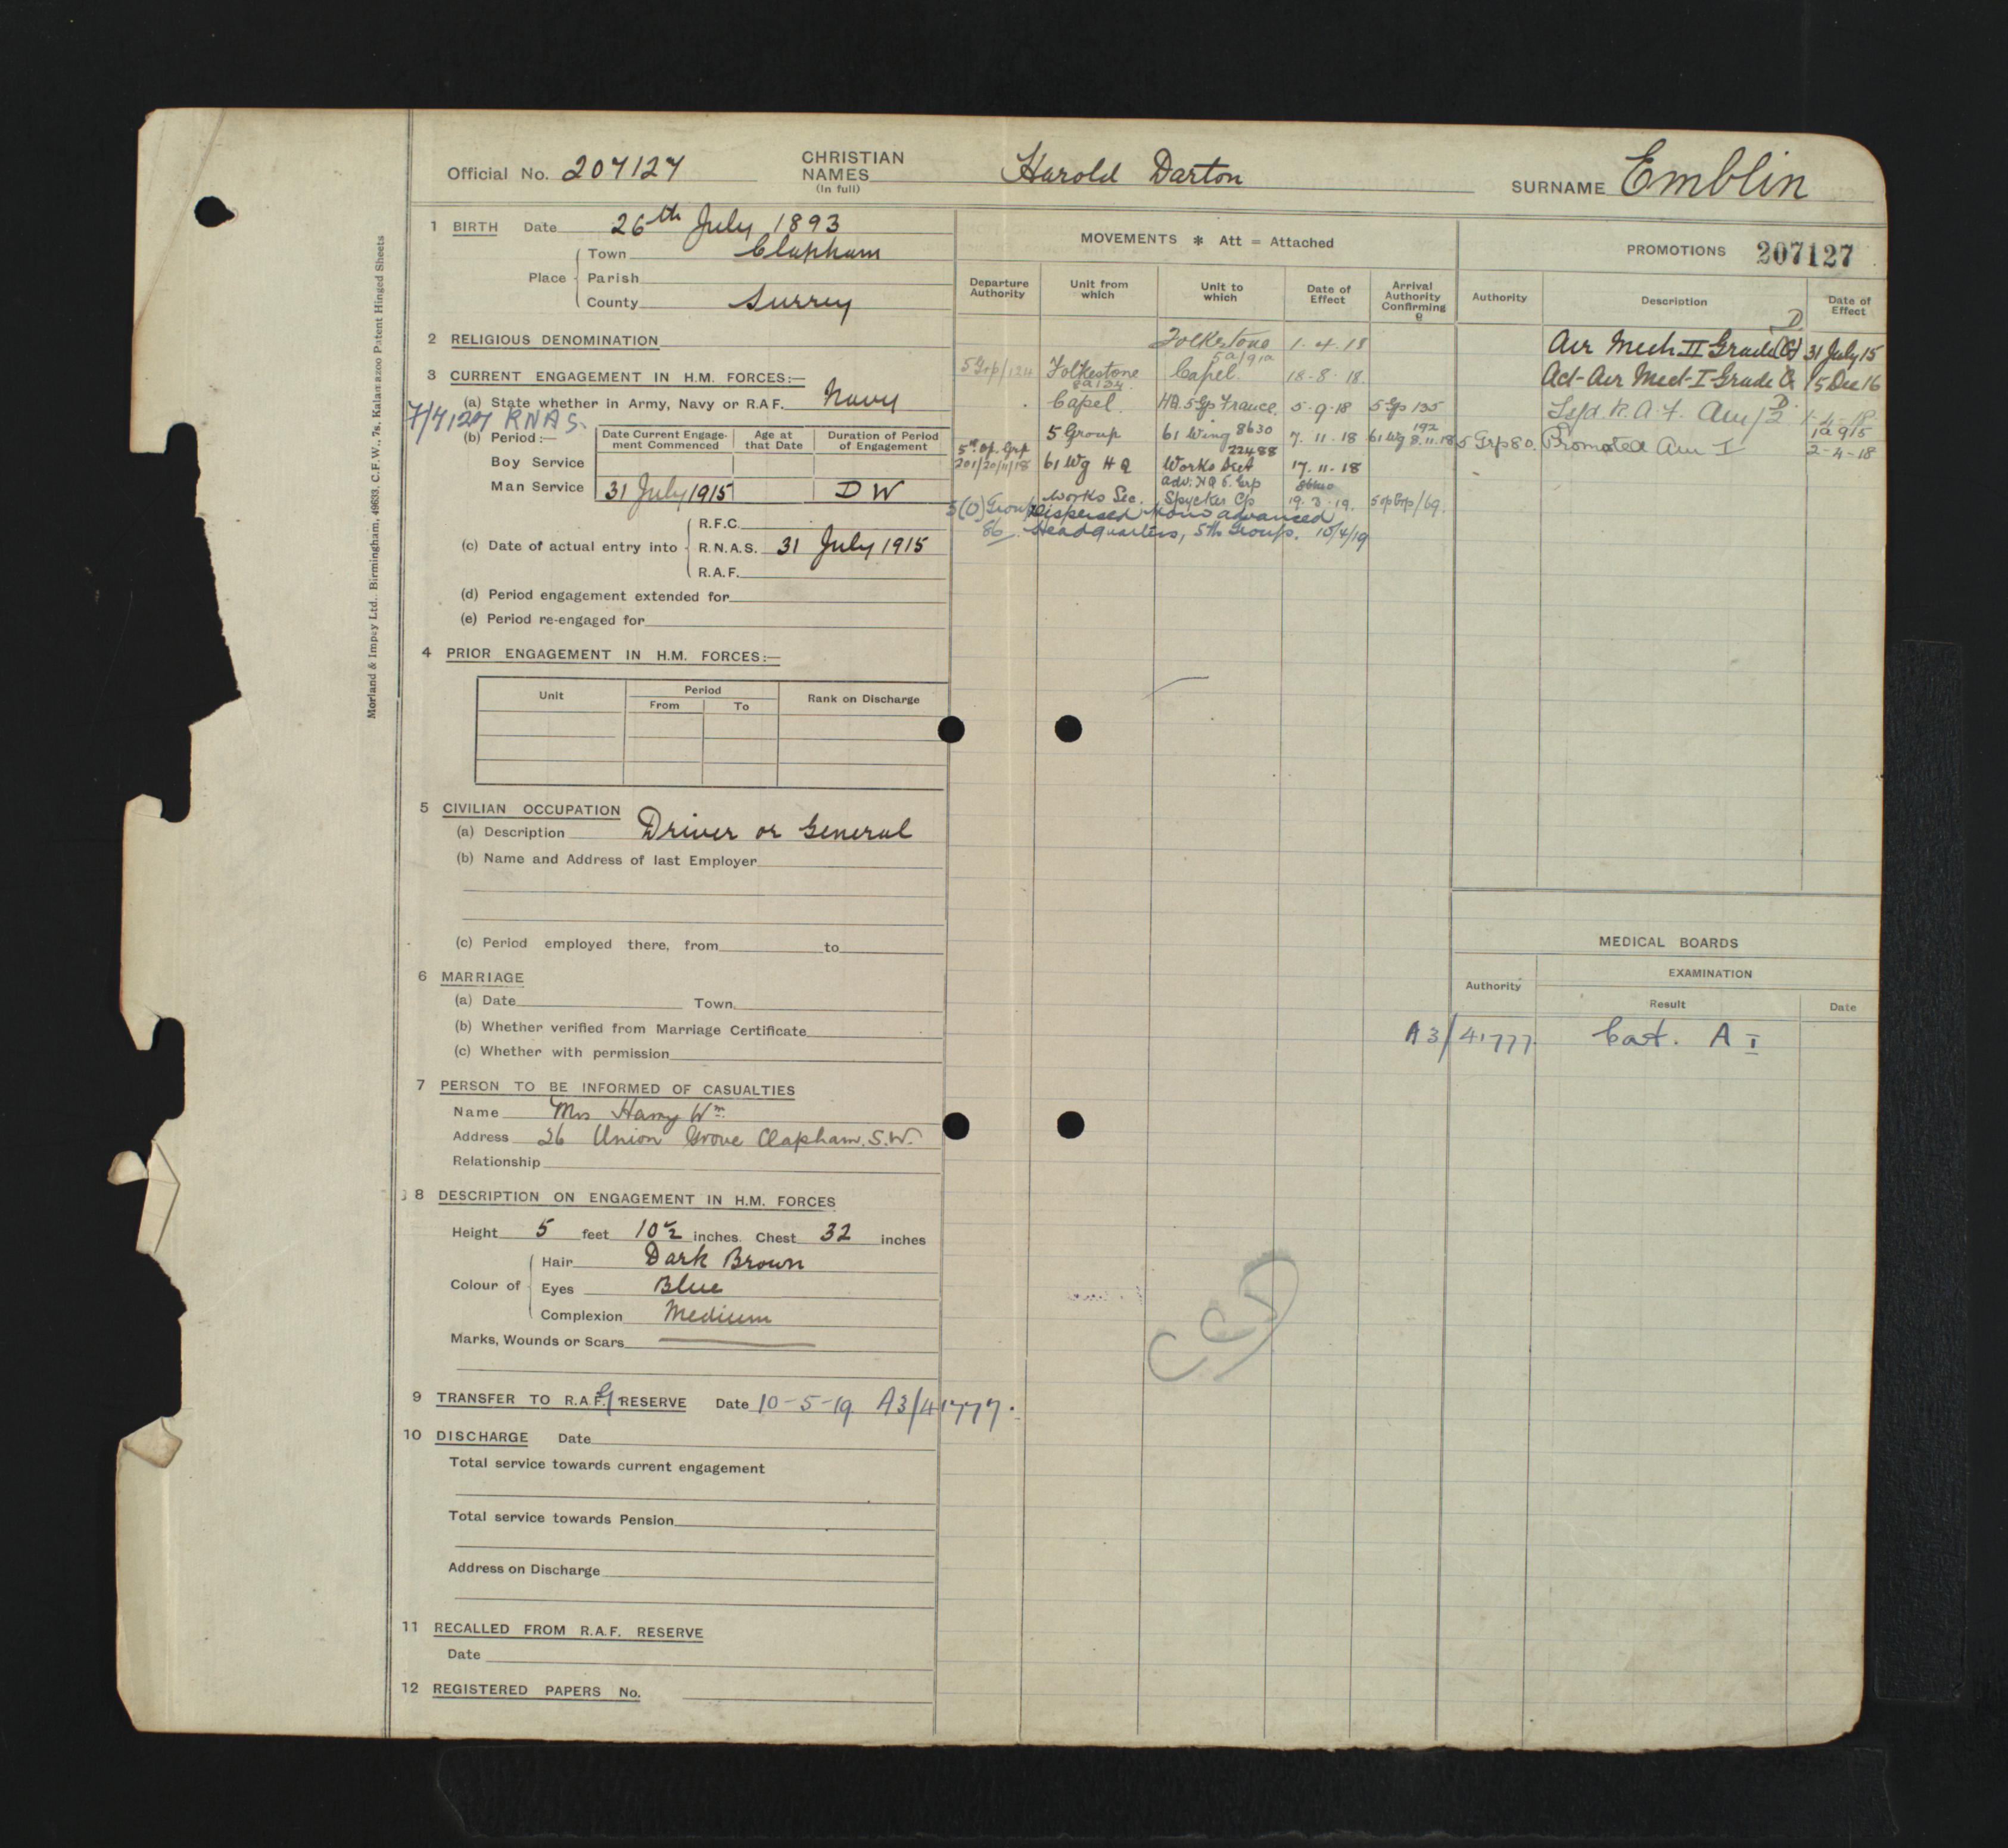 Official No. 207127 CHRISTIAN NAMES (In full) Harold Darton SURNAME Emblin
1 BIRTH Date 26th July 1893
Place Town Clapham
Parish
County Surrey
2 RELIGIOUS DENOMINATION
3 CURRENT ENGAGEMENT IN H.M. FORCES:—
(a) State whether in Army, Navy or R.A.F. Navy
7/4127 RNAS.
(b) Period:— Date Current Engagement Commenced Age at that Date Duration of Period of Engagement
Boy Service
Man Service 31 July 1915 DW
(c) Date of actual entry into R.F.C.
R.N.A.S. 31 July 1915
R.A.F.
(d) Period engagement extended for
(e) Period re-engaged for
4 PRIOR ENGAGEMENT IN H.M. FORCES:—
Unit Period Rank on Discharge
From To
5 CIVILIAN OCCUPATION
(a) Description Driver or General
(b) Name and Address of last Employer
(c) Period employed there, from to
6 MARRIAGE
(a) Date Town
(b) Whether verified from Marriage Certificate
(c) Whether with permission
7 PERSON TO BE INFORMED OF CASUALTIES
Name Mrs Harry Wm
Address 26 Union Grove Clapham. S.W.
Relationship
8 DESCRIPTION ON ENGAGEMENT IN H.M. FORCES
Height 5 feet 10½ inches. Chest 32 inches
Colour of Hair Dark Brown
Eyes Blue
Complexion Medium
Marks, Wounds or Scars
9 TRANSFER TO R.A.F. G/ RESERVE Date 10-5-19 A3/41777.
10 DISCHARGE Date
Total service towards current engagement
Total service towards Pension
Address on Discharge
11 RECALLED FROM R.A.F. RESERVE
Date
12 REGISTERED PAPERS No.
MOVEMENTS * Att = Attached
Departure Authority Unit from which Unit to which Date of Effect Arrival Authority Confirming
Folkestone 1.4.18
5a/91a
5 Grp/124 Folkestone Capel 18-8-18
8a134
Capel HQ. 5 Gp France. 5.9.18 5 Gp 135
5 Group 61 Wing 8630 7.11.18 61 Wg 8.11.18 192
22488
5th Op. Grp 201/20/11/18 61 Wg HQ Works Sect 17.11.18
Works Sec. Adv. HQ 5. Grp Spycker Cp 19.3.19. 5 op Grp/69
5(O) Group 86 Dispersed from advanced
Headquarters, 5th Group. 10/4/19
PROMOTIONS 207127
Authority Description Date of Effect
Air Mech II Grade 31 July 15
Act-Air Mech I Grade 15 Dec 16
R.A.F. Am/2 D 1-4-18
1a 915
5 Grp 80. Promoted Am I 2-4-18
MEDICAL BOARDS
Authority EXAMINATION
Result Date
A3/41777 Cat. A I
Morland & Impey Ltd., Birmingham, 49633, C.F.W., 7s, Kalamazoo Patent Hinged Sheets